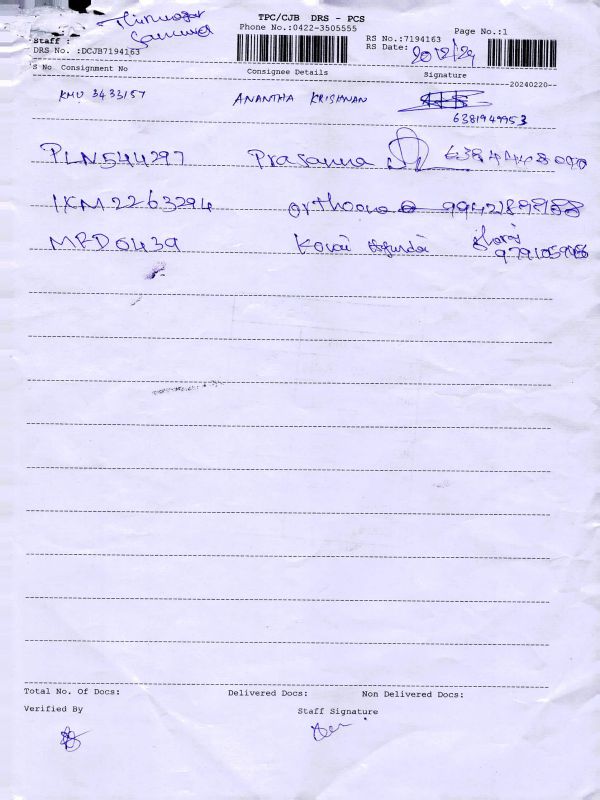 TPC/CJB DRS - PCS
Phone No.:0422-3505555
Page No.:1
RS No.:7194163
RS Date: 20/2/24
Staff :
DRS No. :DCJB7194163
S No Consignment No Consignee Details Signature
20240220
KMU 3433157 ANANTHA KRISHNAN
6381949953
PLN544297 Prasanna
IKM2263294
MRD6439 Kovai
Total No. Of Docs: Delivered Docs: Non Delivered Docs:
Verified By Staff Signature